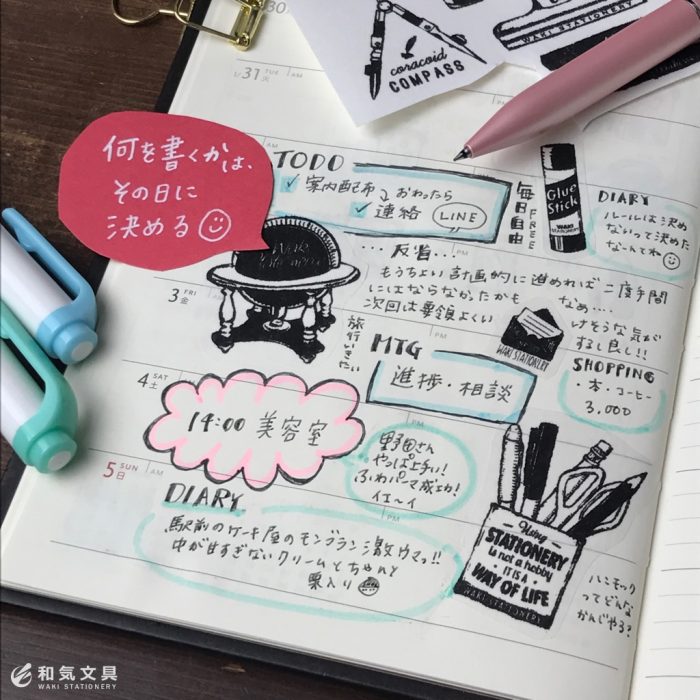 30
31 TUE 火
AM
coracoid
COMPASS
WAKI STATIONERY
何を書くかは、
その日に
決める
TODO
✓ 案内配布 おわったら
✓ 連絡 LINE
毎日自由 FREE
Glue
Stick
WAKI STATIONERY
DIARY
ルールは決め
ないって決めた
なんてね
反省...
もうちょい計画的に進めれば二度手間
にはならなかったかもなぁ....
次回は要領よくい
けそうな気が
するし良し!!
3 FRI 金
旅行いきたい
WAKI STATIONERY
MTG
進捗・相談
SHOPPING
・本・コーヒー
3,000
4 SAT 土
AM
14:00 美容室
野田さん
やっぱ上手い!
ふわパーマ成功!
イエーイ
PM
5 SUN 日
AM
DIARY
PM
駅前のケーキ屋のモンブラン激ウマッ!!
中が甘すぎないクリームとちゃんと
栗入り
Using
STATIONERY
is not a hobby
IT IS A
WAY OF LIFE
WAKI STATIONERY
ハンモック
ってどんな
かんじやろ?
和気文具
WAKI STATIONERY